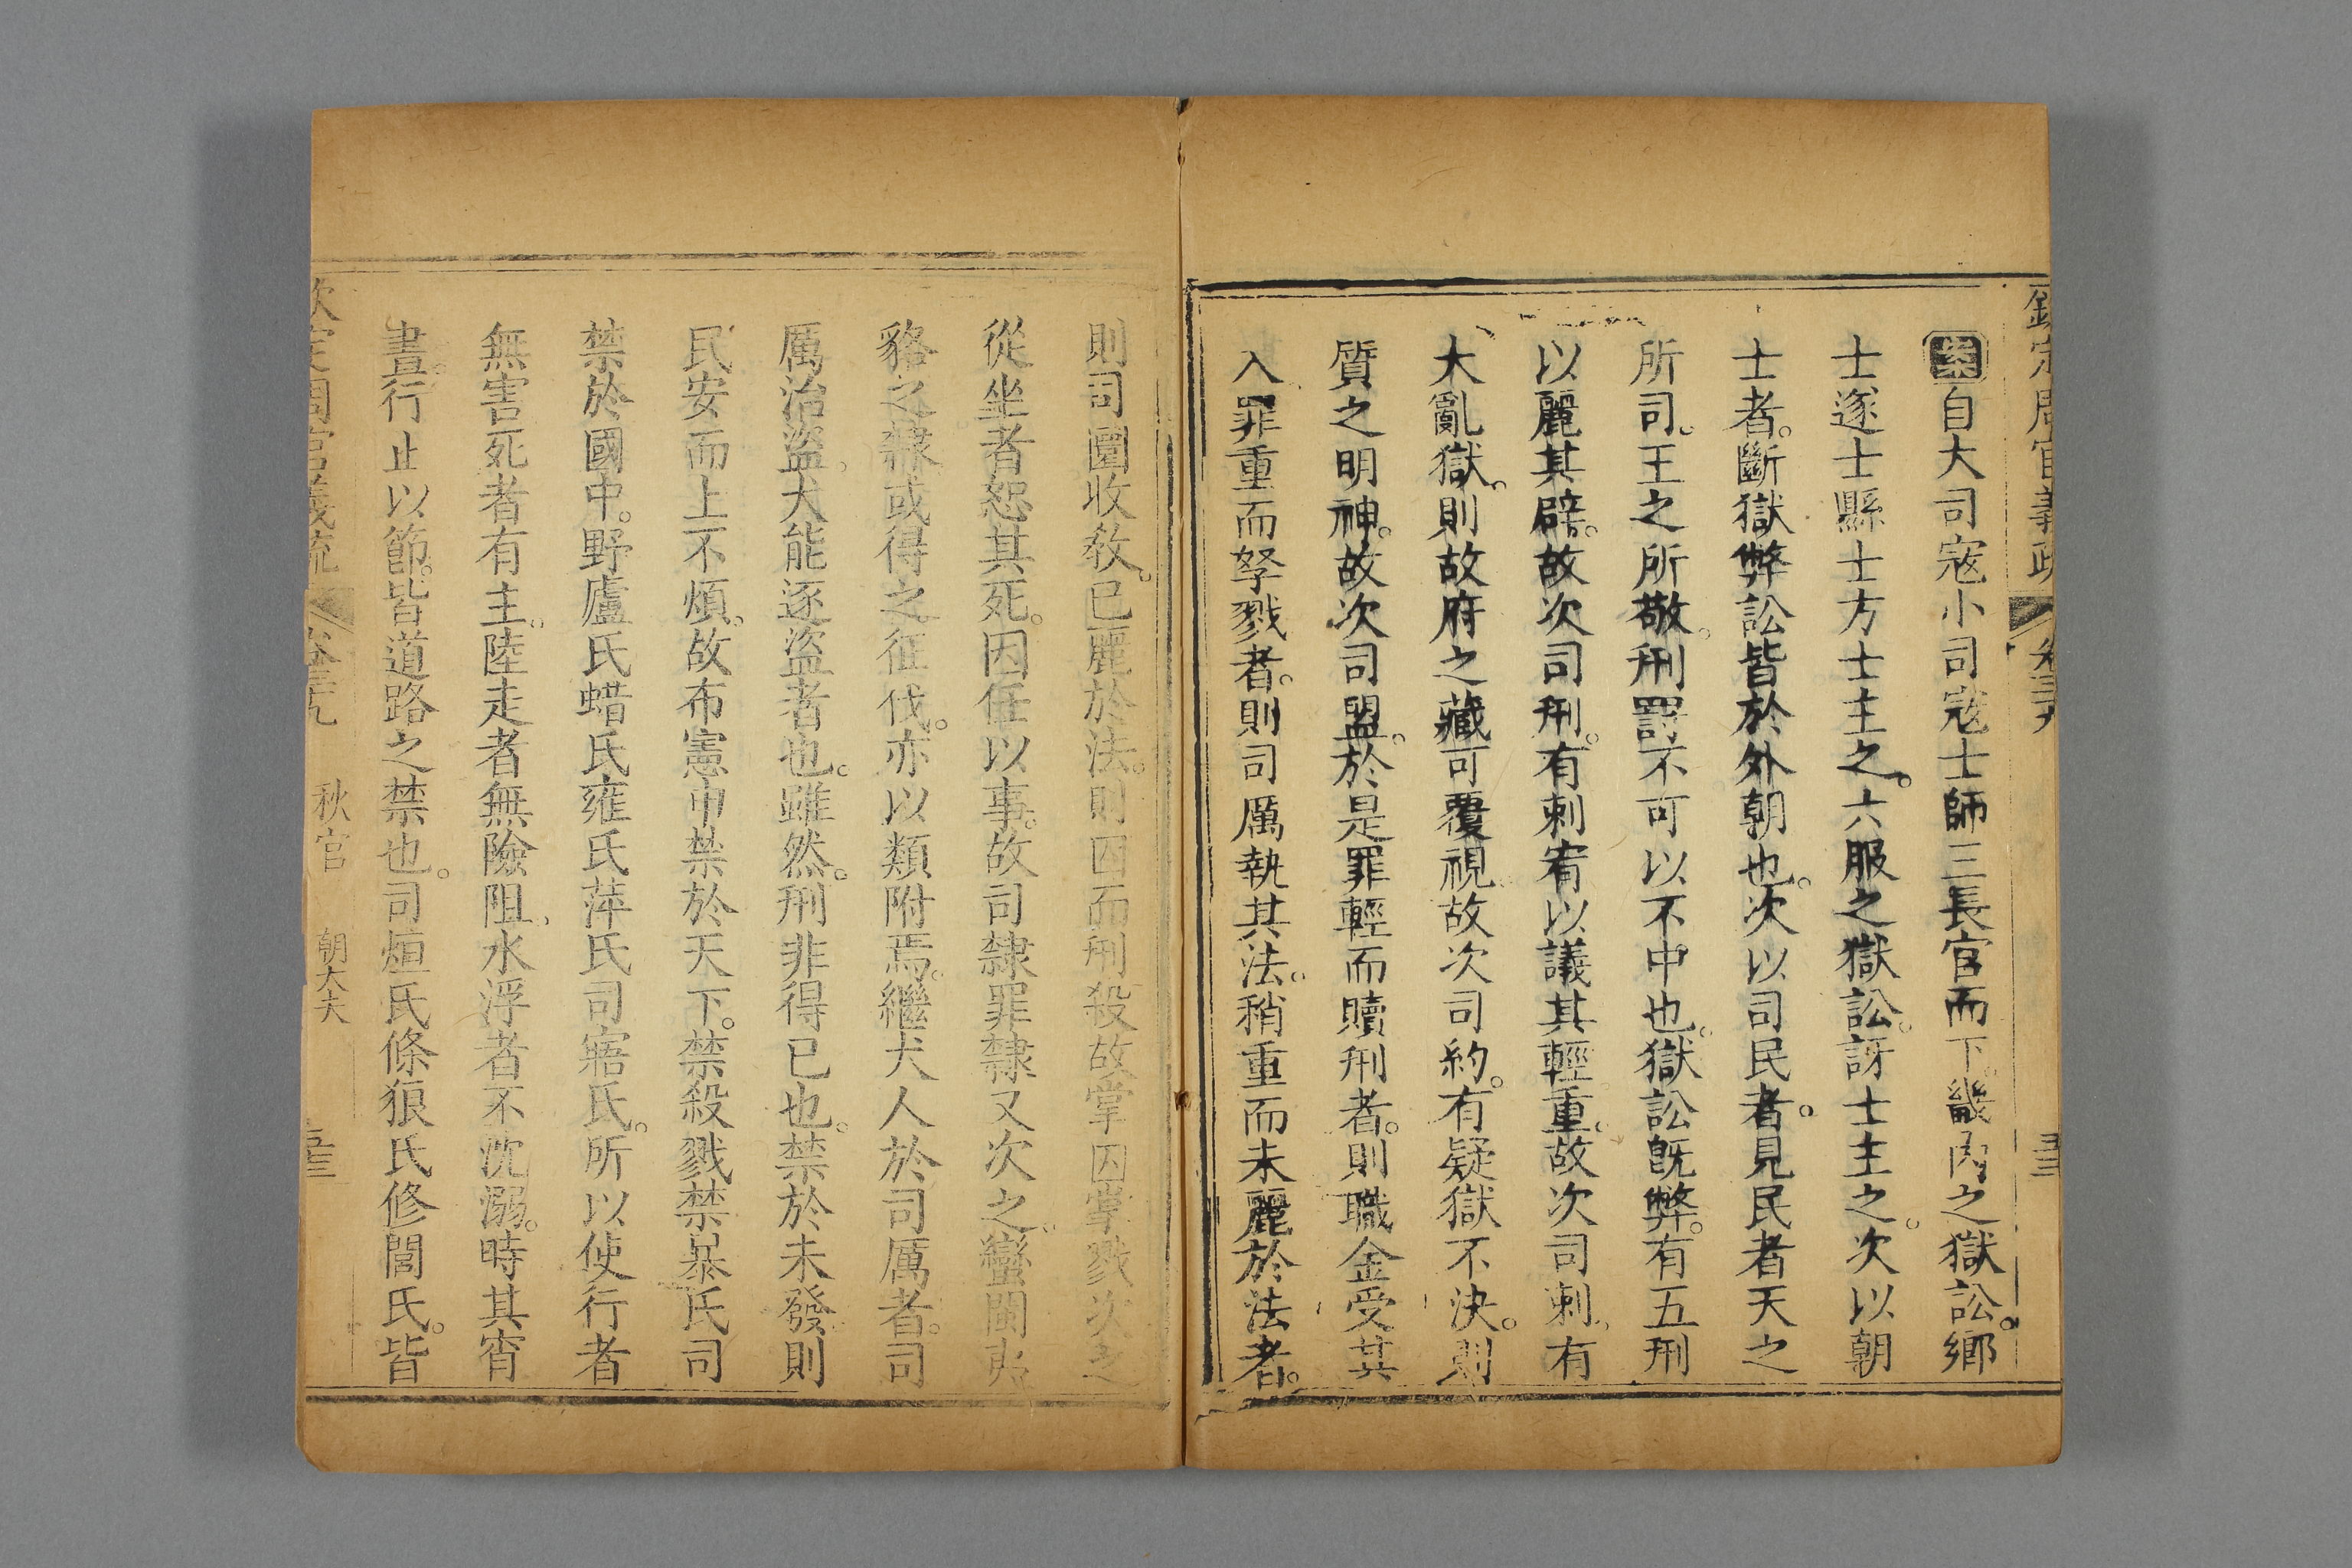 案自大司寇小司寇士師三長官而下畿內之獄訟。鄉
士遂士縣士方士主之。六服之獄訟。訝士主之。次以朝
士者。斷獄弊訟皆於外朝也。次以司民者。見民者天之
所司。王之所敬。刑罰不可以不中也。獄訟既弊。有五刑
以麗其辟。故次司刑。有刺宥以議其輕重。故次司刺。有
大亂獄。則故府之藏可覆視。故次司約。有疑獄不決。則
質之明神。故次司盟。於是罪輕而贖刑者。則職金受其
入。罪重而孥戮者。則司厲執其法。稍重而未麗於法者。
則司圜收敎。已麗於法。則囚而刑殺。故掌囚掌戮次之
從坐者恕其死。因任以事。故司隸罪隸又次之。蠻閩夷
貉之隸。或得之征伐。亦以類附焉。繼犬人於司厲者。司
厲治盜。犬能逐盜者也。雖然。刑非得已也。禁於未發。則
民安而上不煩。故布憲申禁於天下。禁殺戮禁暴氏司
禁於國中。野廬氏蜡氏雍氏萍氏司寤氏。所以使行者
無害死者有主。陸走者無險阻。水浮者不沈溺。時其宵
晝。行止以節。皆道路之禁也。司烜氏條狼氏修閭氏。皆
欽定周官義疏 卷三十九 秋官 朝大夫 五十三